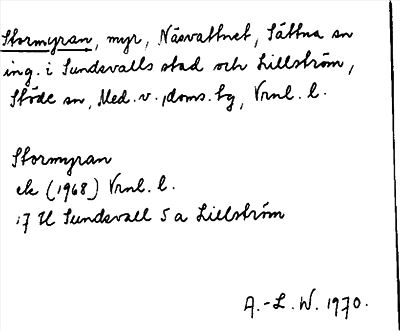 Stormyran, myr, Näsvattnet, Sättna sn
ing. i Sundsvalls stad och Lillström,
Stöde sn, Med. v., doms. hg, Vrnl. l.
Stormyran
ek (1968) Vrnl. l.
17 H Sundsvall 5 a Lillström
A.-L. W. 1970.